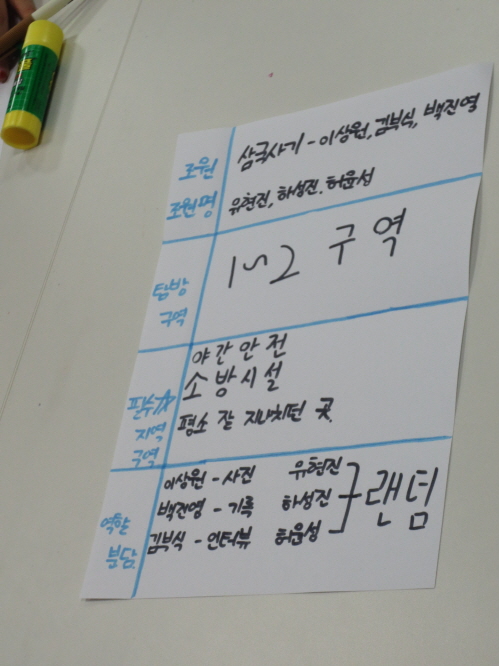 조원
조원명
삼국사기 - 이상원, 김부식, 백진열
유현진, 하성진, 허윤성
탐방
구역
1~2 구역
필수☆
지역
구역
야간안전
소방시설
평소 잘 지나치던 곳
역할
분담
이상원 - 사진 유현진
백진영 - 기록 하성진
김부식 - 인터뷰 허윤성
랜덤